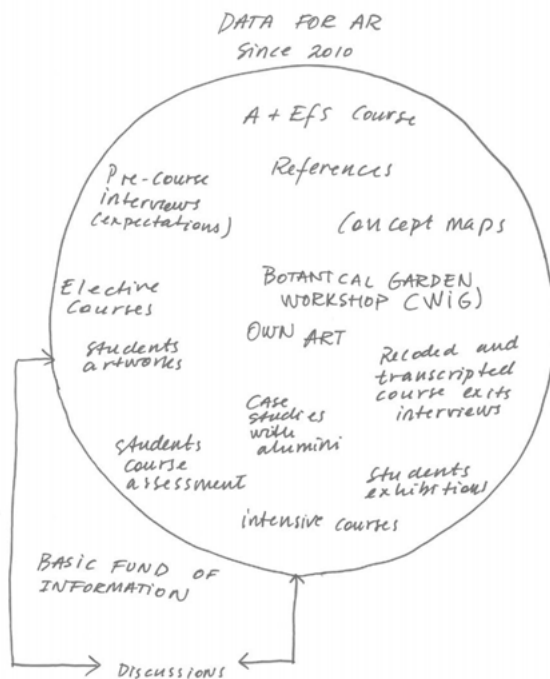 DATA FOR AR
Since 2010
A + Efs Course
References
Pre-course
interviews
(expectations)
Concept maps
Elective
Courses
BOTANICAL GARDEN
WORKSHOP (WIG)
OWN ART
Students
artworks
Recoded and
transcripted
course exits
interviews
Case
studies
with
alumini
Students
course
assessment
Students
exhibitions
intensive courses
BASIC FUND OF
INFORMATION
Discussions